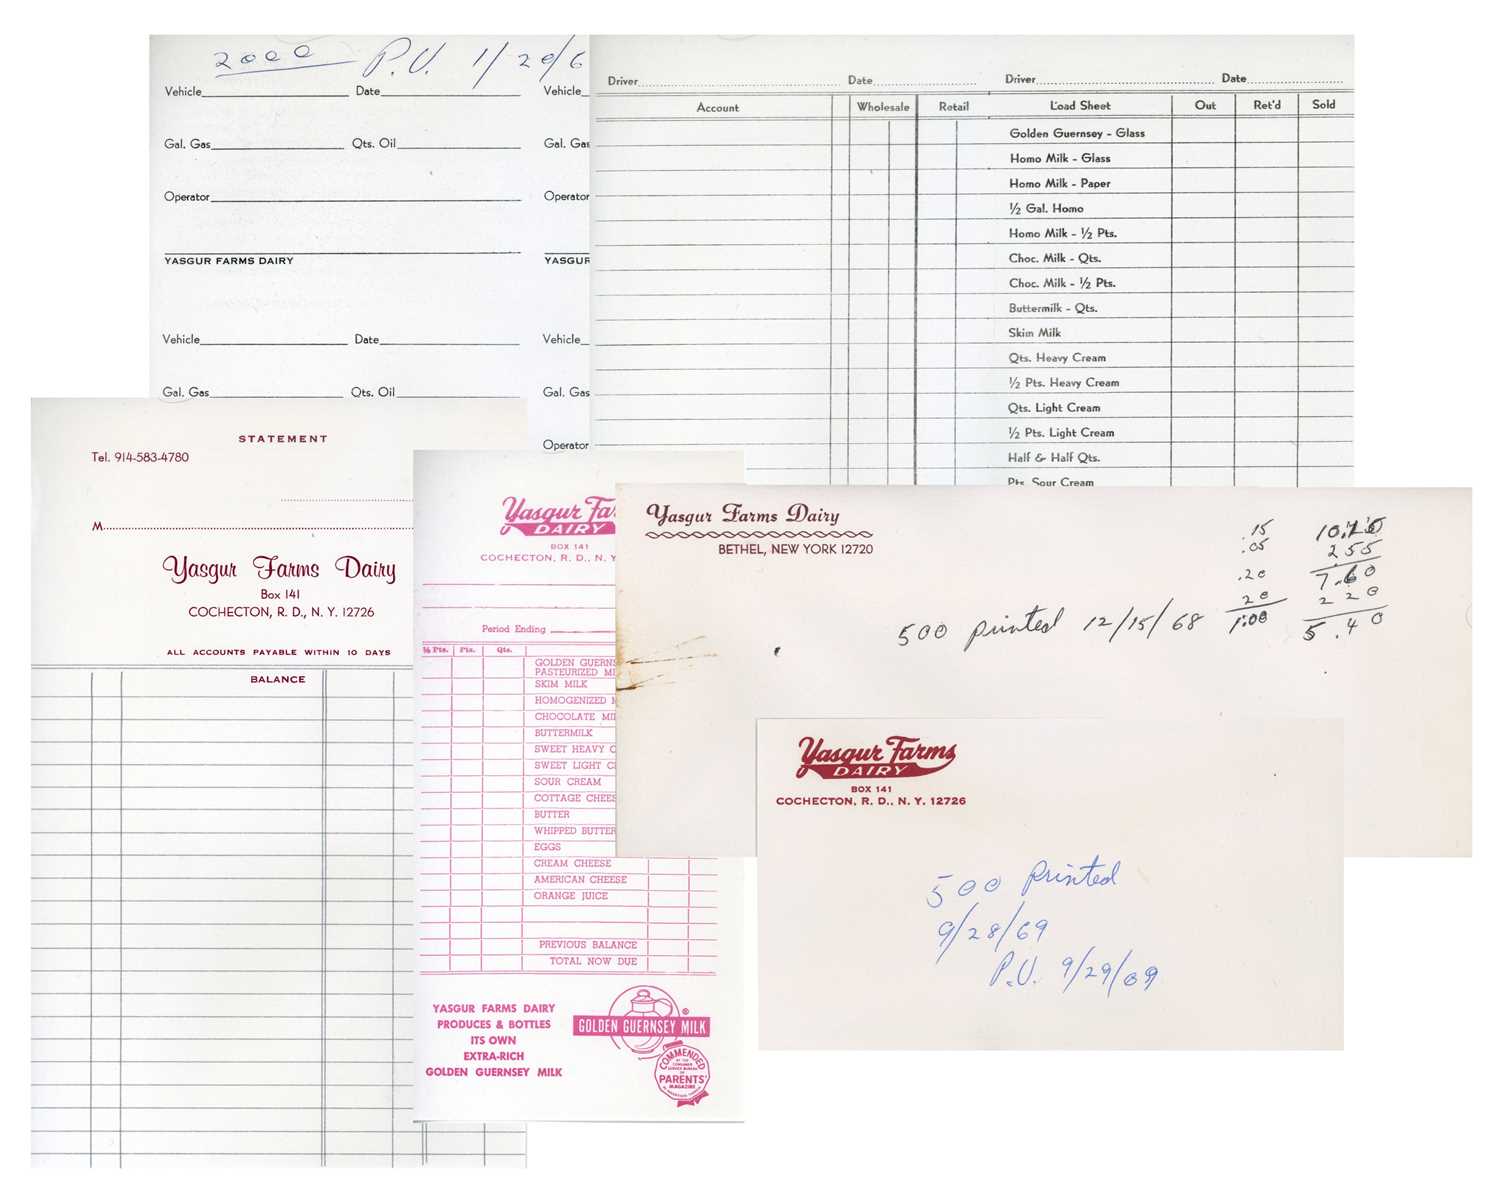 2000 P.U. 1/20/6
Vehicle Date Vehicle
Gal. Gas Qts. Oil Gal. Gas
Operator Operator
YASGUR FARMS DAIRY YASGUR
Vehicle Date Vehicle
Gal. Gas Qts. Oil Gal. Gas
Operator
Driver Date Driver Date
Account Wholesale Retail Load Sheet Out Ret'd Sold
Golden Guernsey - Glass
Homo Milk - Glass
Homo Milk - Paper
½ Gal. Homo
Homo Milk - ½ Pts.
Choc. Milk - Qts.
Choc. Milk - ½ Pts.
Buttermilk - Qts.
Skim Milk
Qts. Heavy Cream
½ Pts. Heavy Cream
Qts. Light Cream
½ Pts. Light Cream
Half & Half Qts.
Pts. Sour Cream
STATEMENT
Tel. 914-583-4780
M
Yasgur Farms Dairy
Box 141
COCHECTON, R. D., N. Y. 12726
ALL ACCOUNTS PAYABLE WITHIN 10 DAYS
BALANCE
Yasgur Fa
DAIRY
BOX 141
COCHECTON, R. D., N. Y
Period Ending
½ Pts. Pts. Qts.
GOLDEN GUERNS
PASTEURIZED MI
SKIM MILK
HOMOGENIZED M
CHOCOLATE MIL
BUTTERMILK
SWEET HEAVY C
SWEET LIGHT C
SOUR CREAM
COTTAGE CHEES
BUTTER
WHIPPED BUTTER
EGGS
CREAM CHEESE
AMERICAN CHEESE
ORANGE JUICE
PREVIOUS BALANCE
TOTAL NOW DUE
YASGUR FARMS DAIRY
PRODUCES & BOTTLES
ITS OWN
EXTRA-RICH
GOLDEN GUERNSEY MILK
GOLDEN GUERNSEY MILK ®
COMMENDED
BY THE
CONSUMER
SERVICE BUREAU
OF
PARENTS'
MAGAZINE
Yasgur Farms Dairy
BETHEL, NEW YORK 12720
.15
.05
.20
20
1.00
2 55
7.60
2 20
5.40
500 printed 12/15/68
Yasgur Farms
DAIRY
BOX 141
COCHECTON, R. D., N. Y. 12726
500 Printed
9/28/69
P.U. 9/29/69